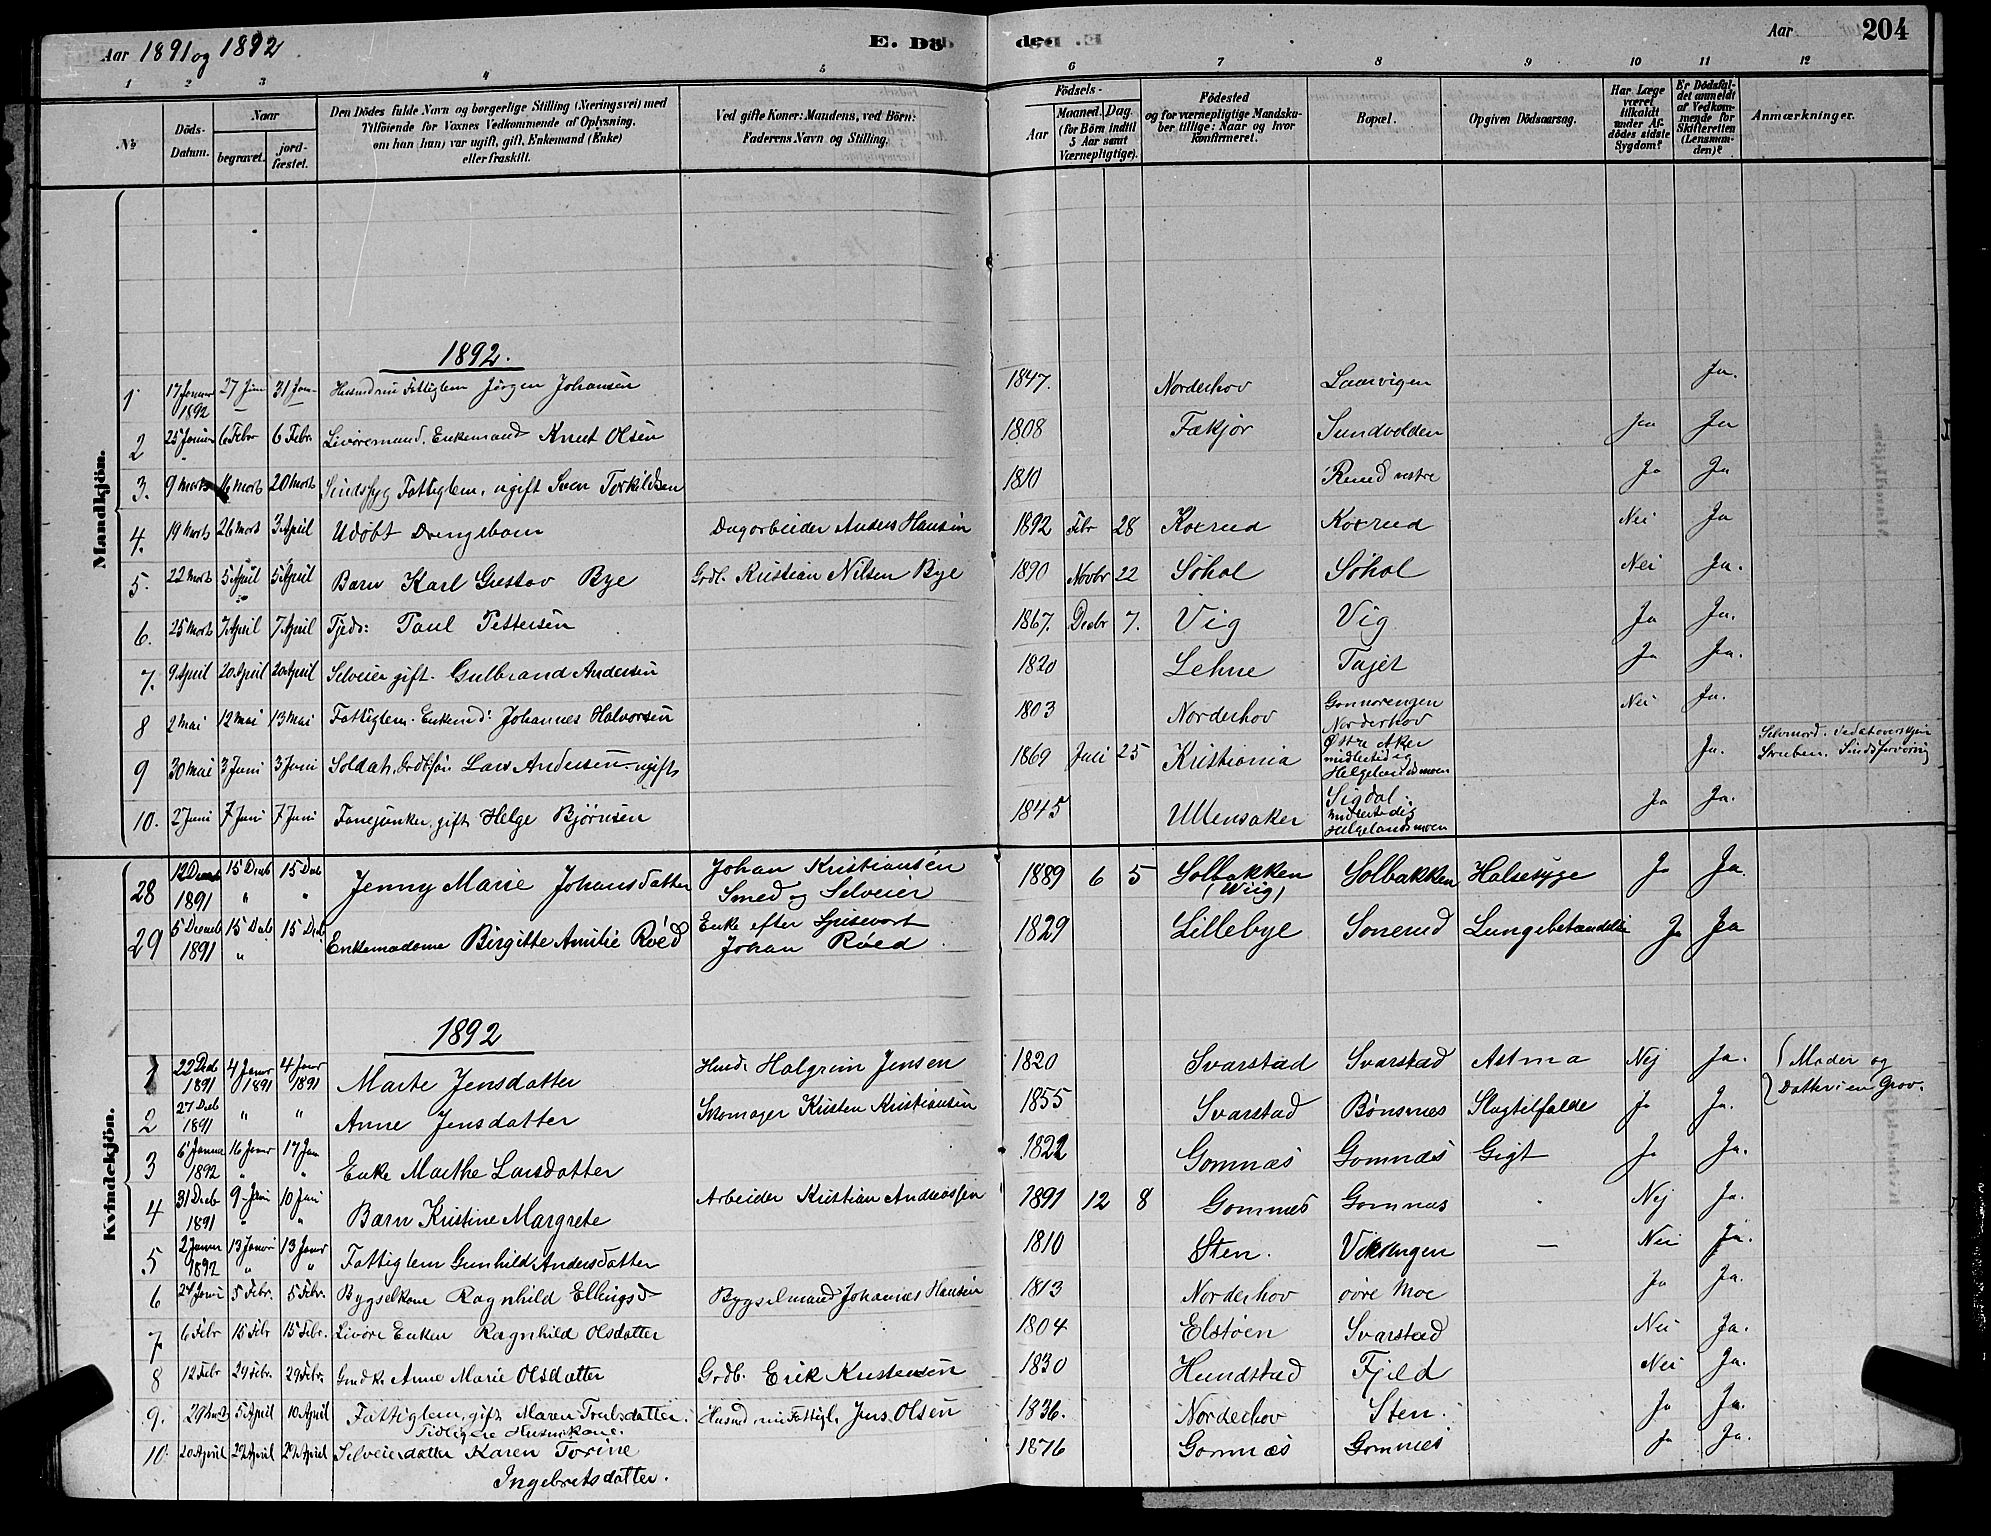 Aar 1891 og 1892
E. Dö
Aar 204
1 2 3 4 5 6 7 8 9 10 11 12
No
Döds-Datum.
Naar
begravet. jordfæstet.
Den Dödes fulde Navn og borgerlige Stilling (Næringsvei) med
Tilföiende for Voxnes Vedkommende af Oplysning,
om han (hun) var ugift, gift, Enkemand (Enke)
eller fraskilt.
Ved gifte Koner: Mandens, ved Börn:
Faderens Navn og Stilling.
Födsels-
Aar Maaned. Dag.
(for Börn indtil
5 Aar samt
Værnepligtige).
Födested
og for værnepligtige Mandska-
ber tillige: Naar og hvor
konfirmeret.
Bopæl.
Opgiven Dödsaarsag.
Har Læge
været
tilkaldt
under Af-
dödes sidste
Sygdom?
Er Dödsfal-
det anmeldt
af Vedkom-
mende for
Skifteretten
(Lensman-
den)?
Anmærkninger.
Mandkjön.
1892.
1 17 Januar 1892 27 Jan 31 Jan Fattiglem Jörgen Johansen 1847. Norderhov Laarvigen Ja.
2 25 Januar 6 Febr 6 Febr. Livöremand, Enkemand Knut Olsen 1808 Fækjør Sundvolden Ja Ja
3. 9 Marts 16 Marts 20 Marts Sindssyg Fattiglem, ugift Sven Torkildsen 1810 Rund vestre Ja Ja
4. 19 Marts 26 Marts 3 April Udøbt Drengebarn Dagarbeider Anders Hansen 1892 Febr 28 Koxrud Koxrud Nei Ja
5. 22 Marts 5 April 5 April Barn Karl Gustav Bye Grdb. Kristian Nilsen Bye 1890 Novbr 22 Søhol Søhol Nei Ja.
6. 25 Marts 7 April 7 April Tjeds: Paul Pettersen 1867. Decbr 7. Vig Vig Ja Ja.
7. 9 April 20 April 20 April Selveier gift. Gulbrand Andersen 1820 Lehne Tajet Ja Ja.
8 2 Mai 12 Mai 13 Mai Fattiglem. Enkemd: Johannes Halvorsen 1803 Norderhov Gonnorengen Norderhov Nei Ja.
9 30 Mai 3 Juni 3 Juni Soldat, Grdb.søn Lars Andersen ugift 1869 Juli 25 Kristiania Østre Aker midlertidig Helgelandsmoen Ja. Selvmord. Ved at overskjære Struben. Sindsforvirring
10. 2 Juni 7 Juni 7 Juni Fanejunker, gift Helge Bjørnsen 1845 Ullensaker Sigdal: midlertidig Helgelandsmoen Ja Ja.
Kvindekjön.
28 12 Decb 1891 15 Decb " 15 Decb " Jenny Marie Johansdatter Johan Kristiansen Smed og Selveier 1889 6 5 Solbakken (Wiig) Solbakken Halsesyge Ja Ja.
29 5 Decemb 1891 15 Decb " 15 Decb Enkemadame Birgitte Amilie Røed Enke efter Johan Roed 1829 Lillebye Sonerud Lungebetændelse Ja Ja
1892
1 22 Decb 1891 4 Januar 1891 4 Januar 1891 Marte Jensdatter Husmd. Halgrim Jensen 1820 Svarstad Svarstad Astma Nej Ja. Moder og
2 27 Decb 1891 " " Anne Jensdatter Skomager Kristen Kristiansen 1855 Svarstad Bønsnes Slagtilfælde Ja Ja. Datter i en Grav.
3 6 Januar 1892 16 Januar " 17 Jan " Enke Marthe Larsdatter 1822 Gomnæs Gomnæs Gigt Ja Ja.
4 31 Decb 1891 9 Jan " 10 Jan " Barn Kristine Margrete Arbeider Kristian Andreassen 1891 12 8 Gomnæs Gomnæs - Nej Ja.
5 2 Januar 1892 13 Januar " 13 Januar " Fattiglem Gunhild Andersdatter 1810 Sten. Vikangen — Nei Ja.
6 24 Januar 5 Febr. 5 Febr. Bygselkone Ragnhild Ellingsd Bygselmand Johannes Hansen 1813 Norderhov øvre Moe Ja Ja.
7 6 Febr 15 Febr 15 Febr. Livøre Enken Ragnhild Olsdatter 1804 Elstøen Svarstad Nei Ja.
8 12 Febr 29 Febr. 29 Febr. Anne Marie Olsdatter Grdb. Erik Kristensen 1830 Hundstad Fjeld Nei Ja.
9. 29 Marts 5 April 10 April Fattiglem, gift Maren Trulsdatter. Husmd Fattigl. Jens Olsen 1836. Norderhov Sten. Ja Ja.
Tidligere Husmkone.
10. 20 April 29 April 29 April Selveierdatter Karen Torine 1876 Gomnæs Gomnæs Ja Ja.
Ingebretsdatter.